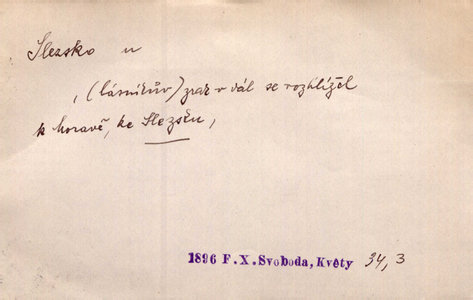 Slezsko n
, (básníkův) zrak v dál se rozhlížel
k Moravě, ke Slezsku,
1896 F.X.Svoboda, Květy 34, 3